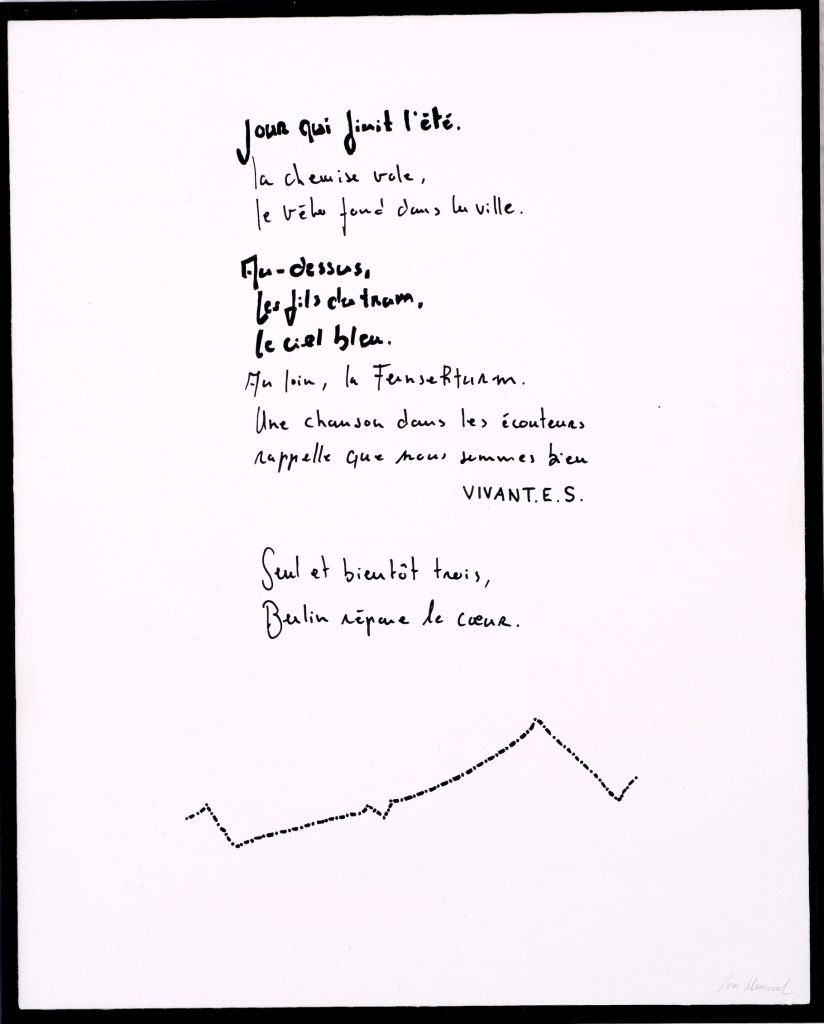 Jour qui finit l'été.
la chemise vole,
le vélo fend dans la ville.
Au-dessus,
les fils du tram,
le ciel bleu.
Au loin, la Fernsehturm.
Une chanson dans les écouteurs
rappelle que nous sommes bien
VIVANT.E.S.
Seul et bientôt trois,
Berlin répare le cœur.